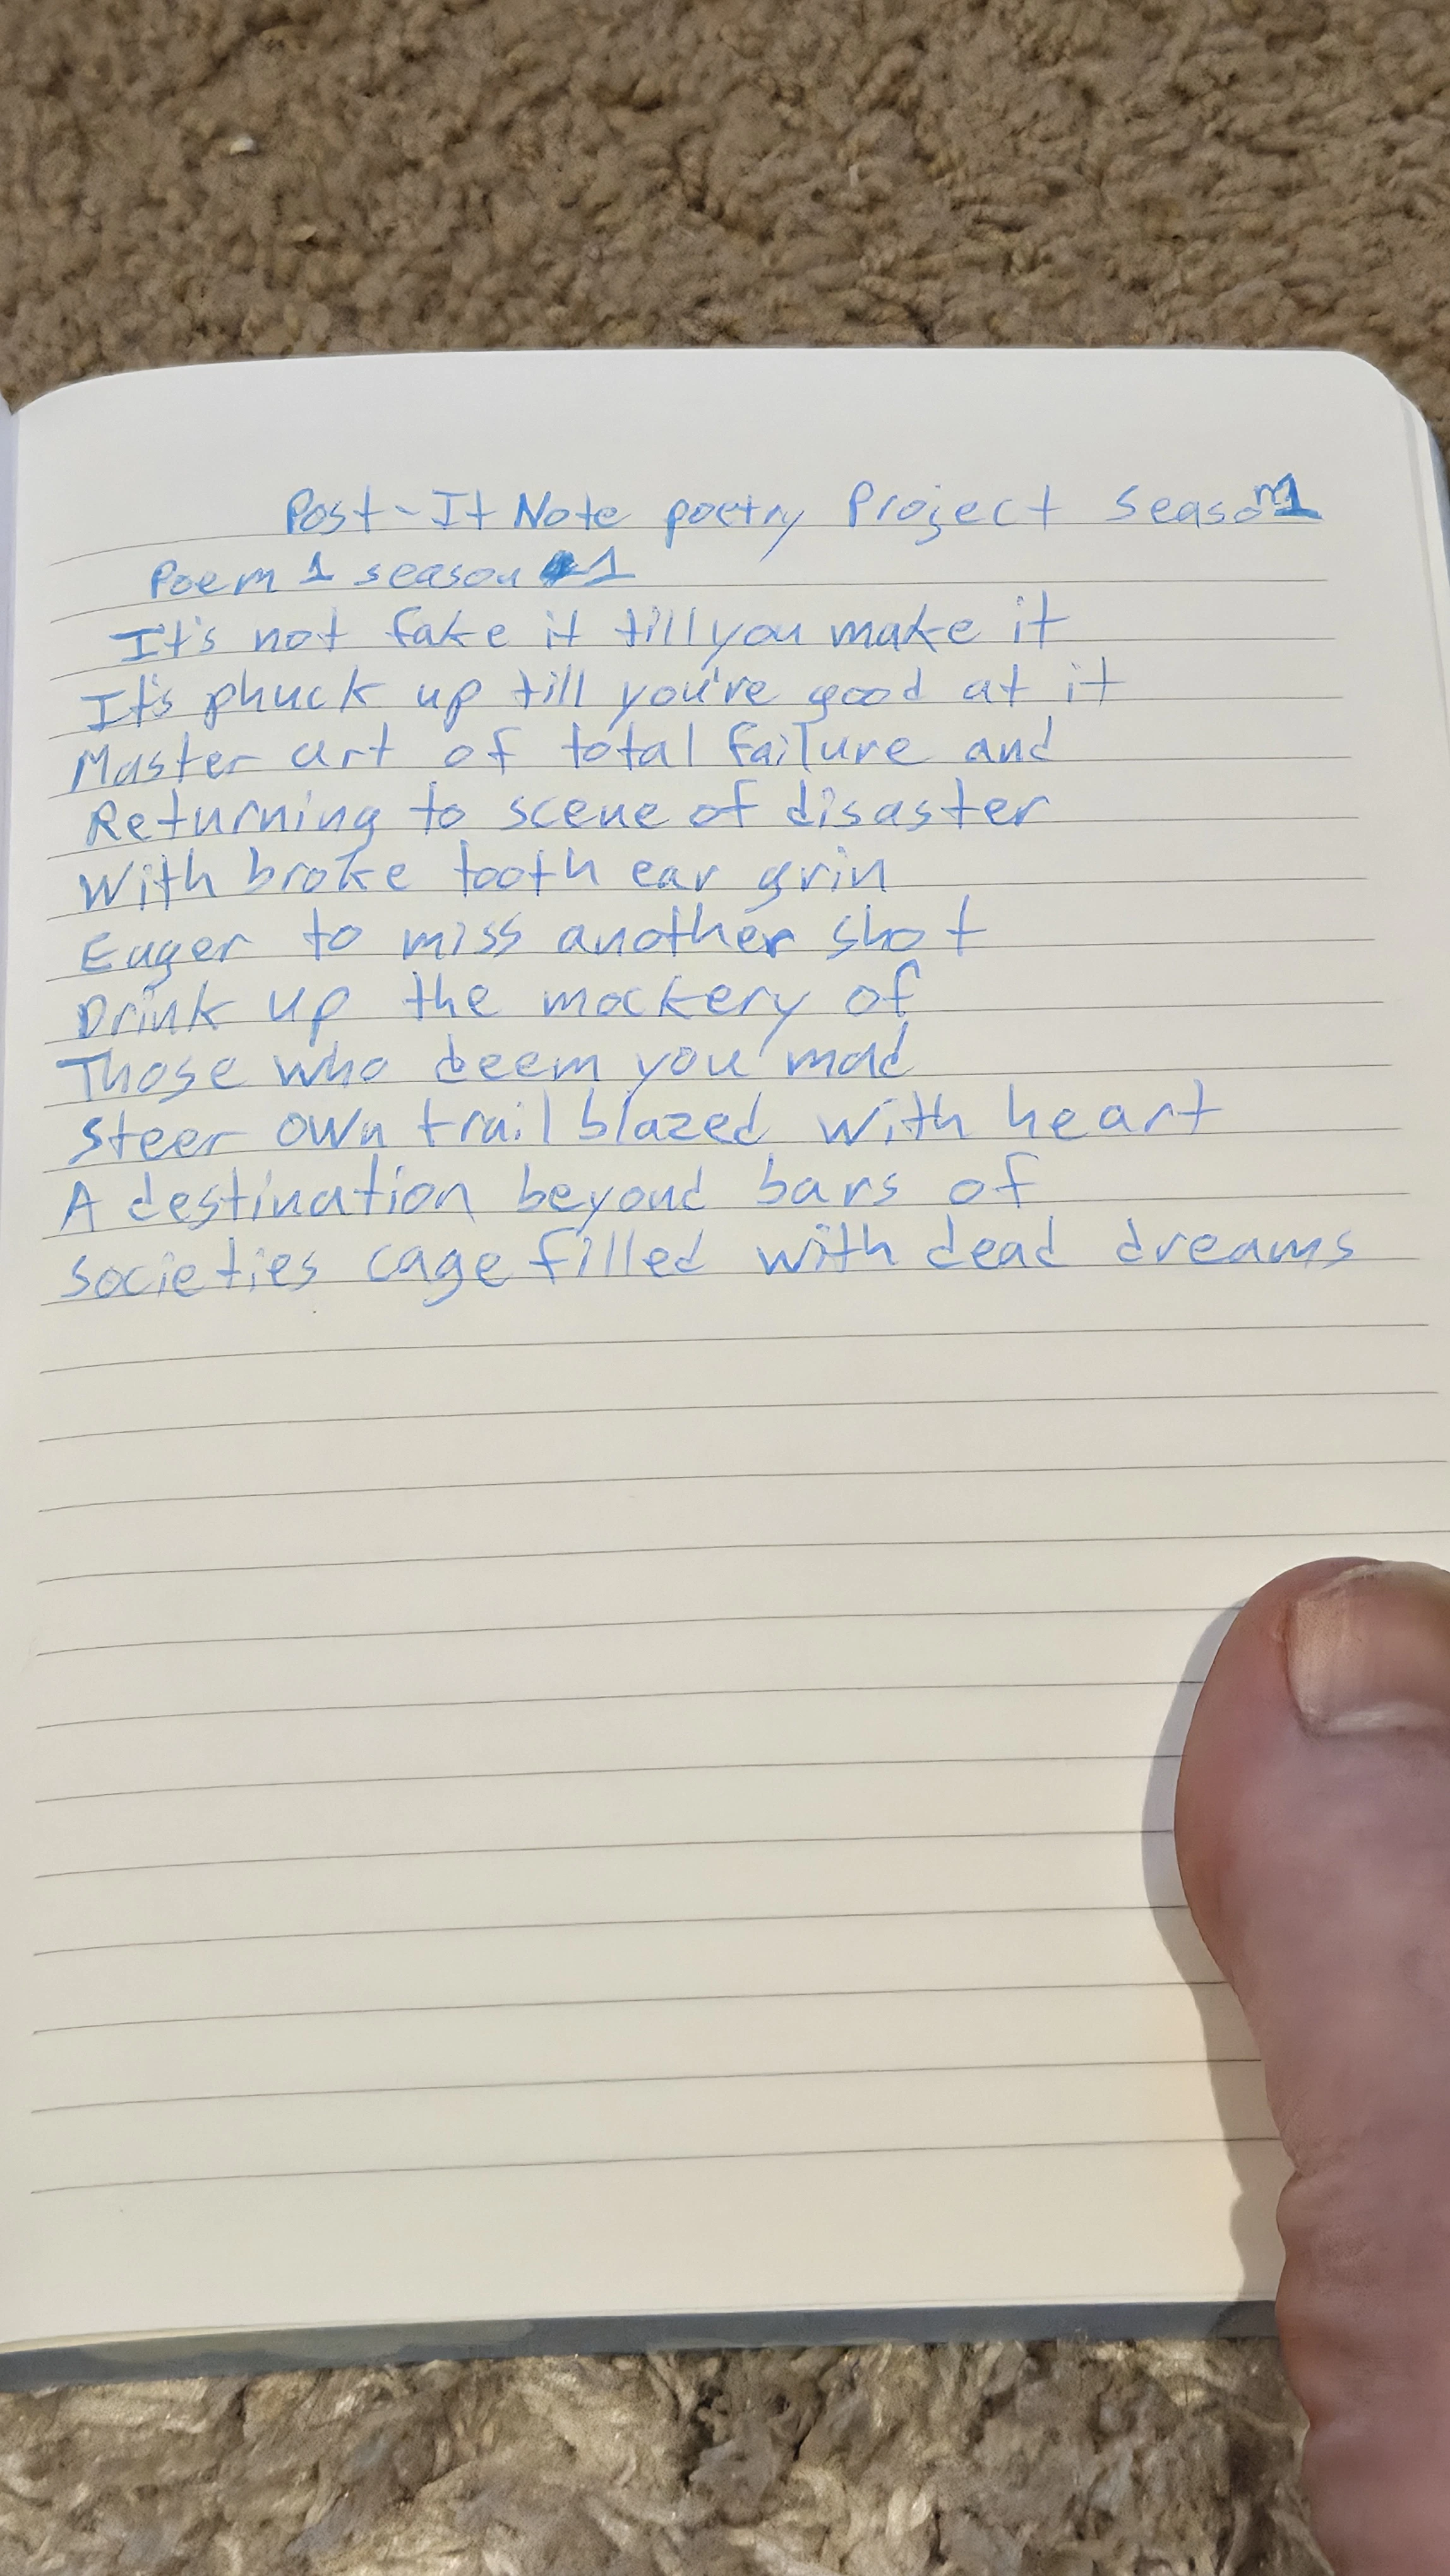 Post-It Note poetry Project Season 1
Poem 1 season 1
It's not fake it till you make it
It's phuck up till you're good at it
Master art of total failure and
Returning to scene of disaster
With broke tooth ear grin
Eager to miss another shot
Drink up the mockery of
Those who deem you mad
Steer own trail blazed with heart
A destination beyond bars of
societies cage filled with dead dreams